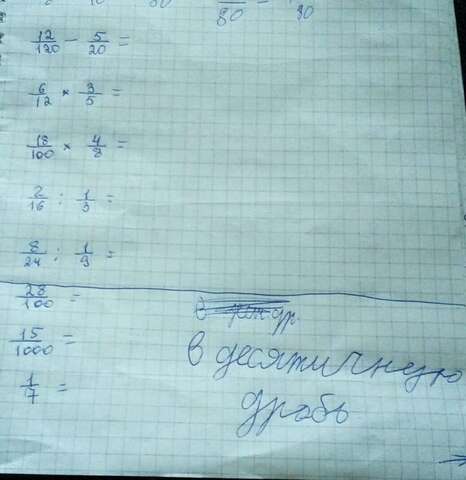 80
90
12/120 - 5/20 =
6/12 × 3/5 =
18/100 × 4/8 =
2/16 : 1/3 =
8/24 : 1/3 =
28/100 =
15/1000 =
1/7 =
в десятичную
дробь